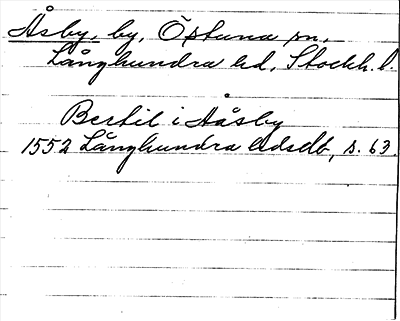 Åsby, by, Östuna sn,
Långhundra hd, Stockh. l.
Bertil i Håsby
1552 Långhundra hdsdb, s. 63.